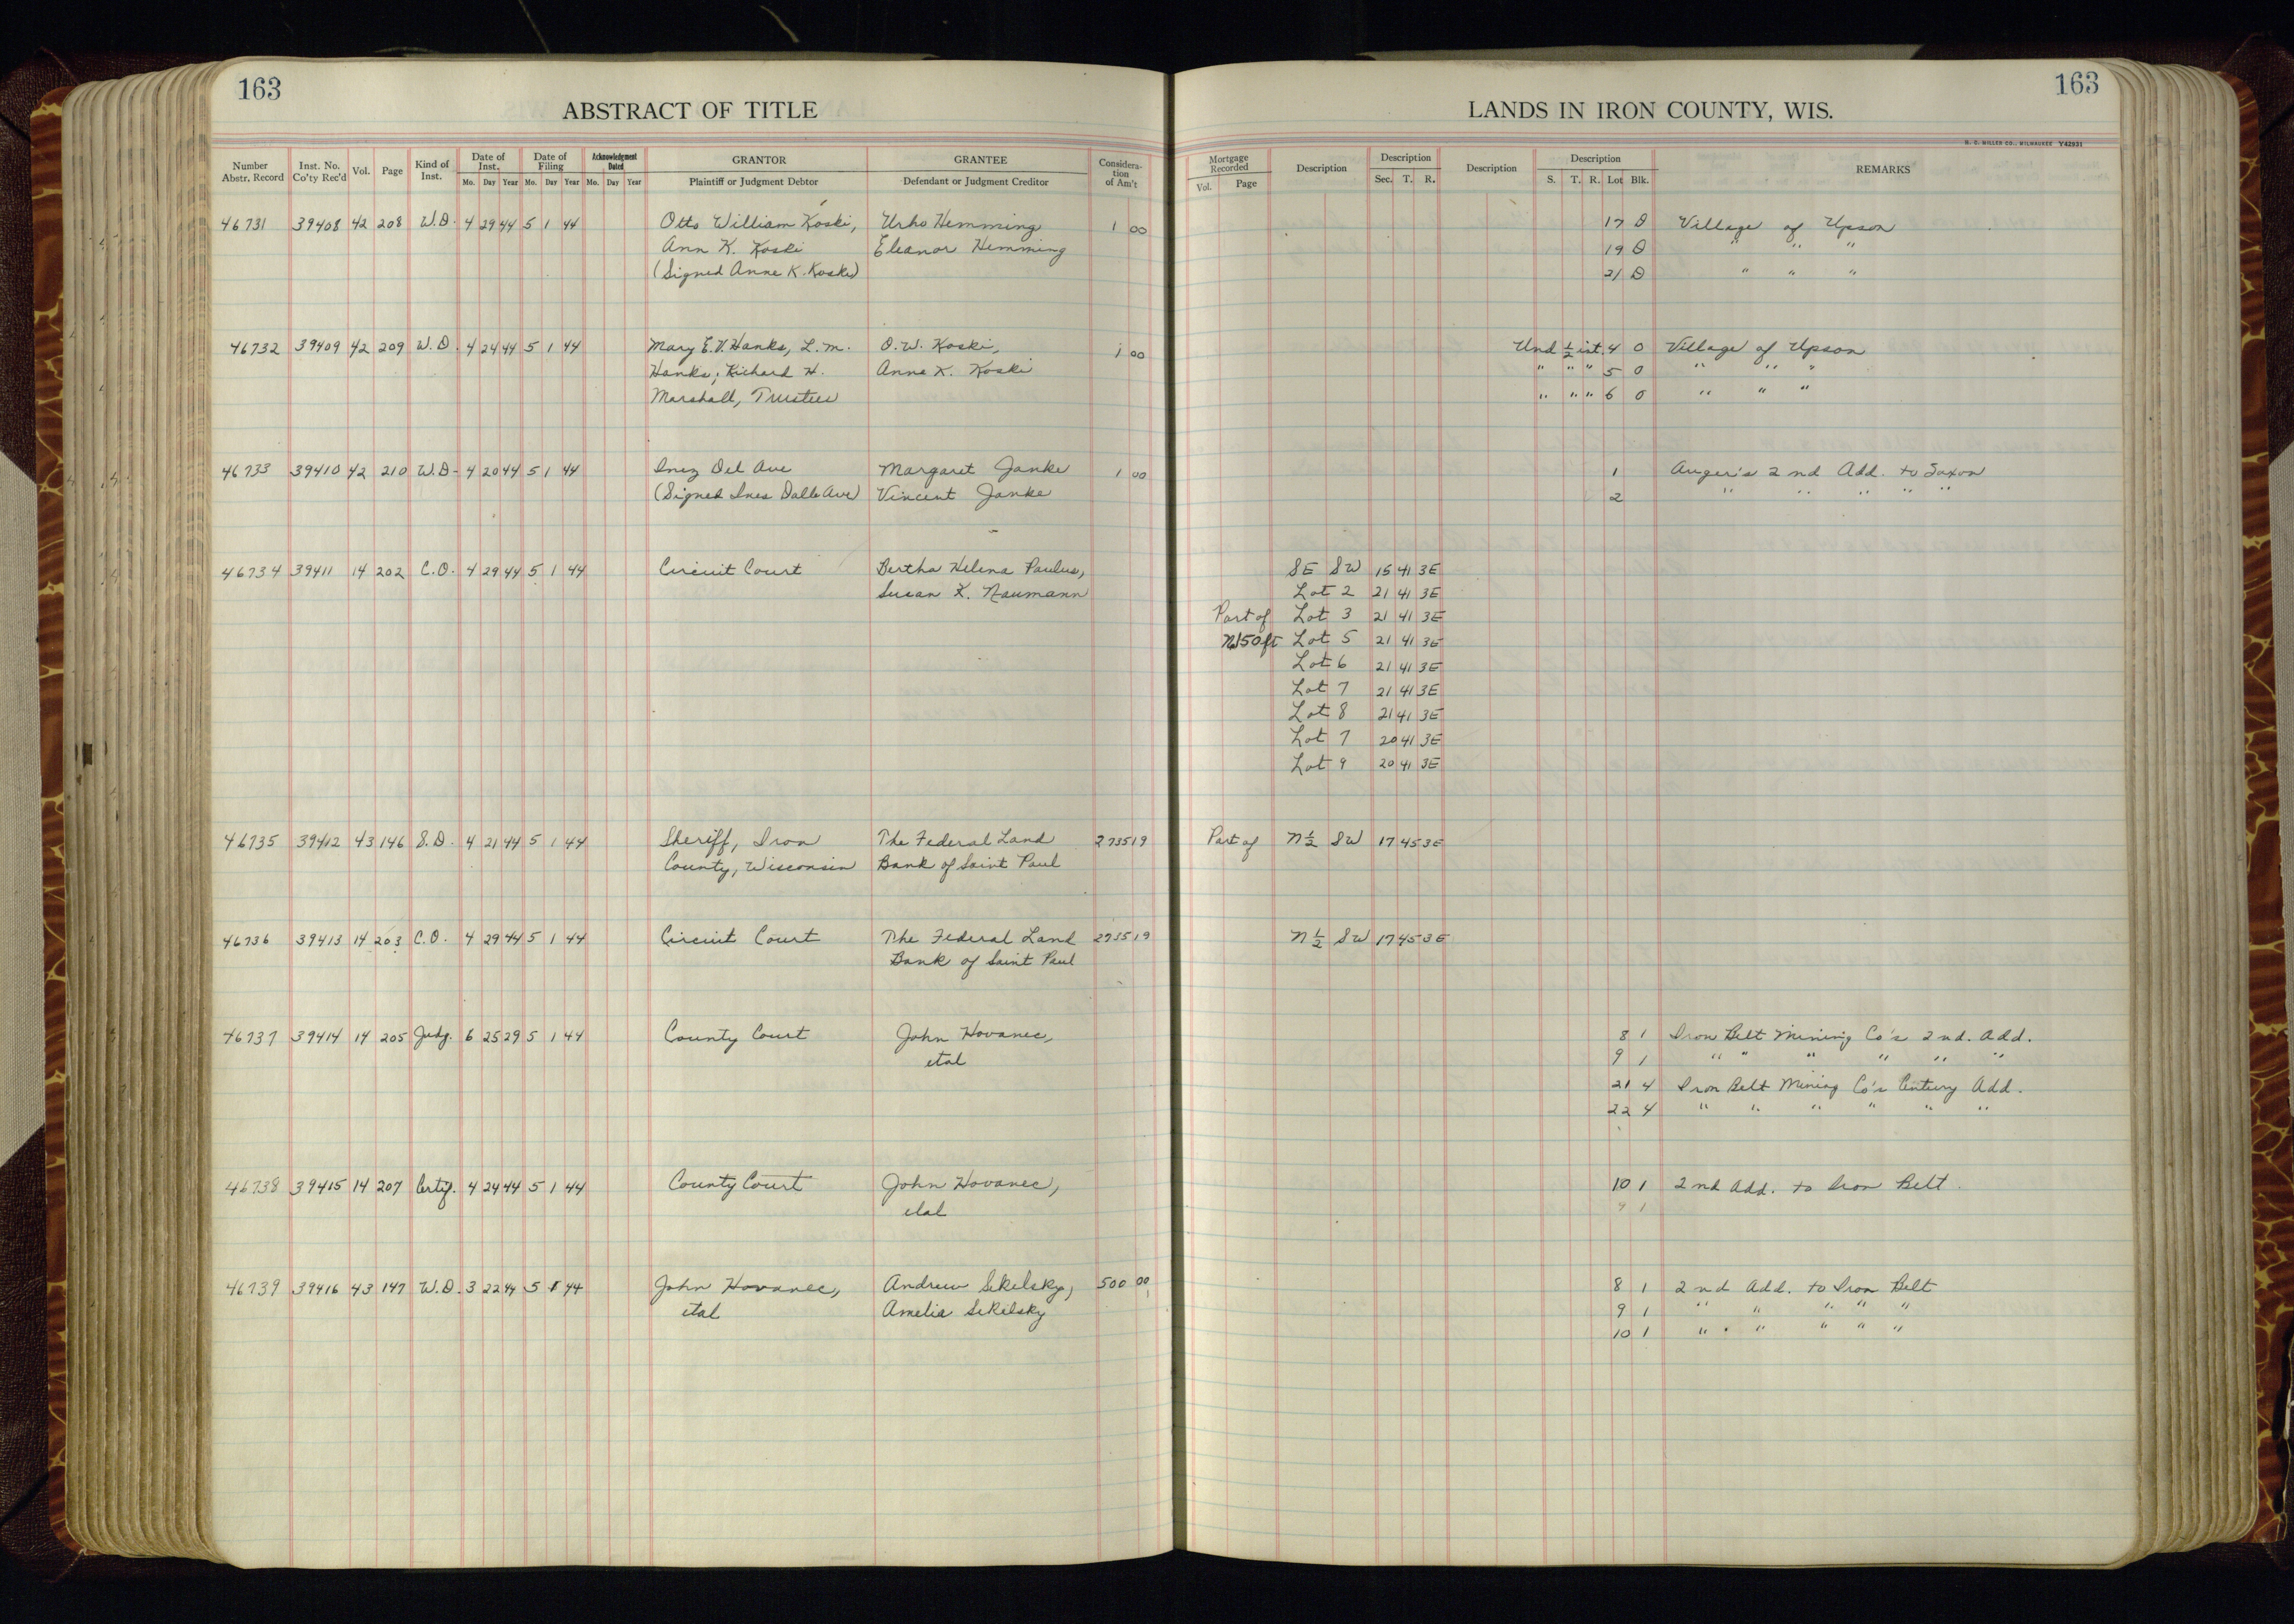 163
ABSTRACT OF TITLE
Number Abstr. Record Inst. No. Co'ty Rec'd Vol. Page Kind of Inst. Date of Inst. Mo. Day Year Date of Filing Mo. Day Year Acknowledgment Dated Mo. Day Year GRANTOR Plaintiff or Judgment Debtor GRANTEE Defendant or Judgment Creditor Consideration of Am't
46731 39408 42 208 W.D. 4 29 44 5 1 44 Otto William Koski, Urho Hemming 1 00
Ann K. Koski Eleanor Hemming
(Signed Anne K. Koski)
46732 39409 42 209 W.D. 4 24 44 5 1 44 Mary E.V. Hanks, L.M. O.W. Koski, 1 00
Hanks; Richard H. Anne K. Koski
Marshall, Trustees
46733 39410 42 210 W.D- 4 20 44 5 1 44 Inez Del Ave Margaret Janke 1 00
(Signed Ines Dalle Ave) Vincent Janke
46734 39411 14 202 C.O. 4 29 44 5 1 44 Circuit Court Bertha Helena Paulus,
Susan K. Naumann
46735 39412 43 146 S.D. 4 21 44 5 1 44 Sheriff, Iron The Federal Land 2735 19
County, Wisconsin Bank of Saint Paul
46736 39413 14 203 C.O. 4 29 44 5 1 44 Circuit Court The Federal Land 2735 19
Bank of Saint Paul
46737 39414 14 205 Judg. 6 25 29 5 1 44 County Court John Hovanec,
etal
46738 39415 14 207 Certif. 4 24 44 5 1 44 County Court John Hovanec,
etal
46739 39416 43 147 W.D. 3 22 44 5 1 44 John Hovanec, Andrew Sekelsky, 500 00
etal Amelia Sekelsky
163
LANDS IN IRON COUNTY, WIS.
H. C. MILLER CO., MILWAUKEE Y42931
Mortgage Recorded Vol. Page Description Description Sec. T. R. Description Description S. T. R. Lot Blk. REMARKS
17 D Village of Upson
19 D " " "
21 D " " "
Und 1/2 int. 4 O Village of Upson
" " " 5 O " " "
" " " 6 O " " "
1 Auger's 2nd Add. to Saxon
2 " " " " "
SE SW 15 41 3E
Lot 2 21 41 3E
Part of Lot 3 21 41 3E
N150ft Lot 5 21 41 3E
Lot 6 21 41 3E
Lot 7 21 41 3E
Lot 8 21 41 3E
Lot 7 20 41 3E
Lot 9 20 41 3E
Part of N 1/2 SW 17 45 3E
N 1/2 SW 17 45 3E
8 1 Iron Belt Mining Co's 2nd. Add.
9 1 " " " " " "
21 4 Iron Belt Mining Co's Century Add.
22 4 " " " " " "
10 1 2nd Add. to Iron Belt.
9 1
8 1 2nd Add. to Iron Belt
9 1 " " " " "
10 1 " " " " "